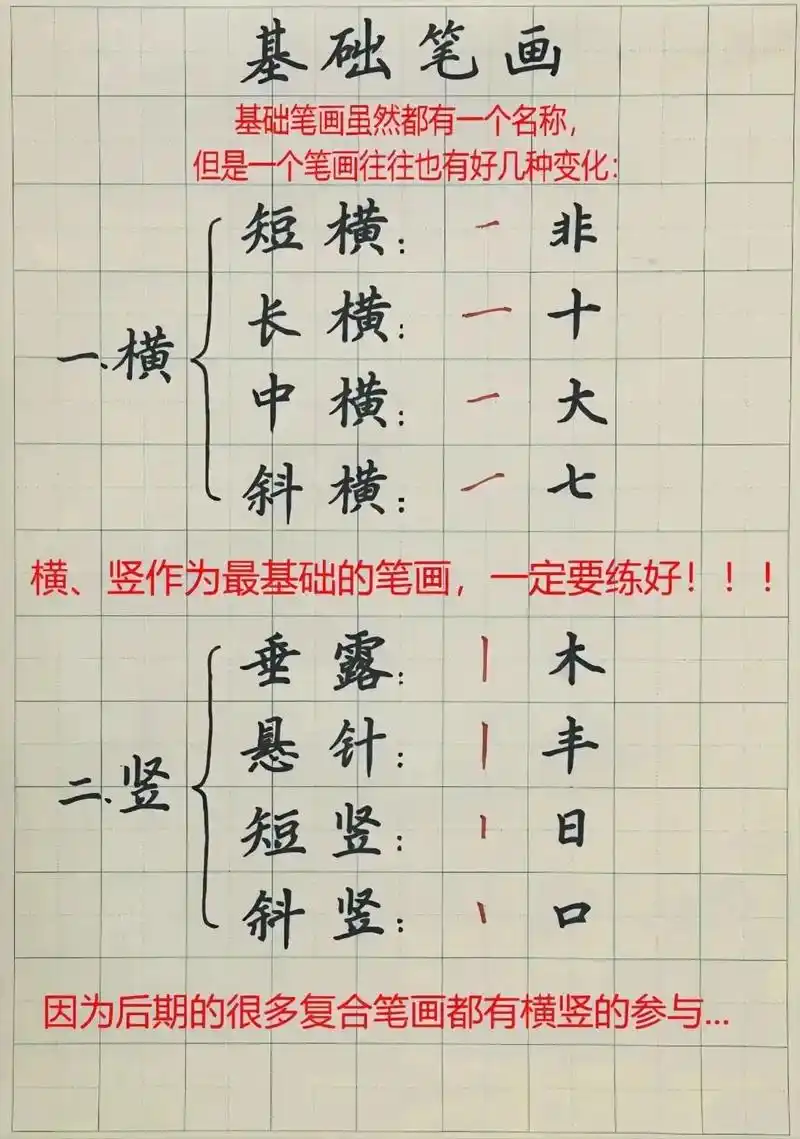 基础笔画
基础笔画虽然都有一个名称，
但是一个笔画往往也有好几种变化：
一.横
短横：一 非
长横：一 十
中横：一 大
斜横：一 七
横、竖作为最基础的笔画，一定要练好！！！
二.竖
垂露：丨 木
悬针：丨 丰
短竖：丨 日
斜竖：丨 口
因为后期的很多复合笔画都有横竖的参与...